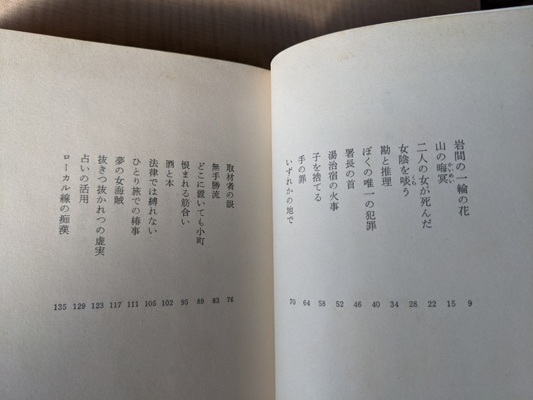 岩間の一輪の花 9
山の晦冥 かいめい 15
二人の女が死んだ 22
女陰を啖う くら 28
勘と推理 34
ぼくの唯一の犯罪 40
署長の首 46
湯治宿の火事 52
子を捨てる 58
手の罪 64
いずれかの地で 70
取材者の説 76
無手勝流 83
どこに置いても小町 89
恨まれる筋合い 95
酒と本 102
法律では縛れない 105
ひとり旅での椿事 111
夢の女海賊 117
抜きつ抜かれつの虚実 123
占いの活用 129
ローカル線の痴漢 135